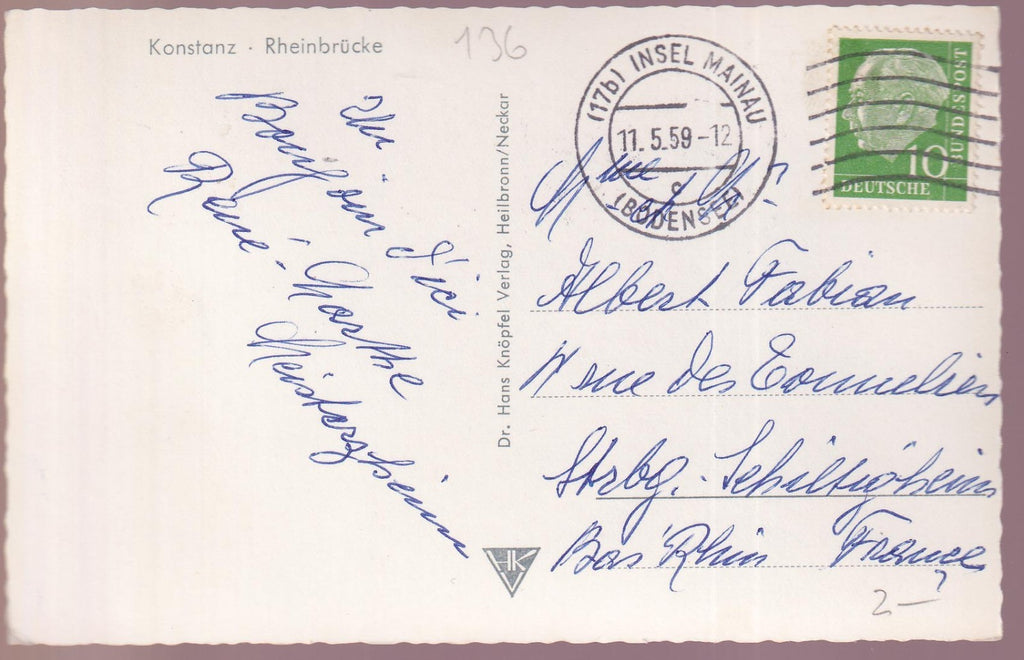 Konstanz · Rheinbrücke
136
Bonjour d'ici
René. Marthe
Meisterzheim
Dr. Hans Knöpfel Verlag, Heilbronn/Neckar
HK
(17b) INSEL MAINAU
11.5.59-12
c
(BODENSEE)
10
DEUTSCHE
BUNDESPOST
Mme &
Albert Fabian
rue des Tonneliers
Strbg.-Schiltigheim
Bas Rhin France
2-